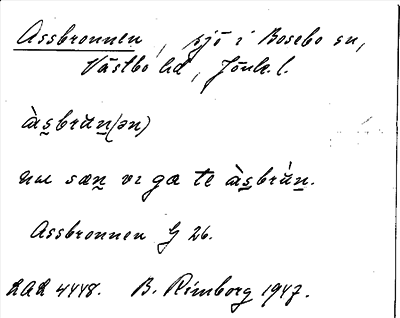 Assbronnen, sjö i Bosebo sn,
Västbo hd, Jönk. l.
às̲brùn̲(ən)
nu sæn̲ vi ga te às̲brùn̲.
Assbronnen G 26.
RAÄ 4448. B. Rimborg 1947.